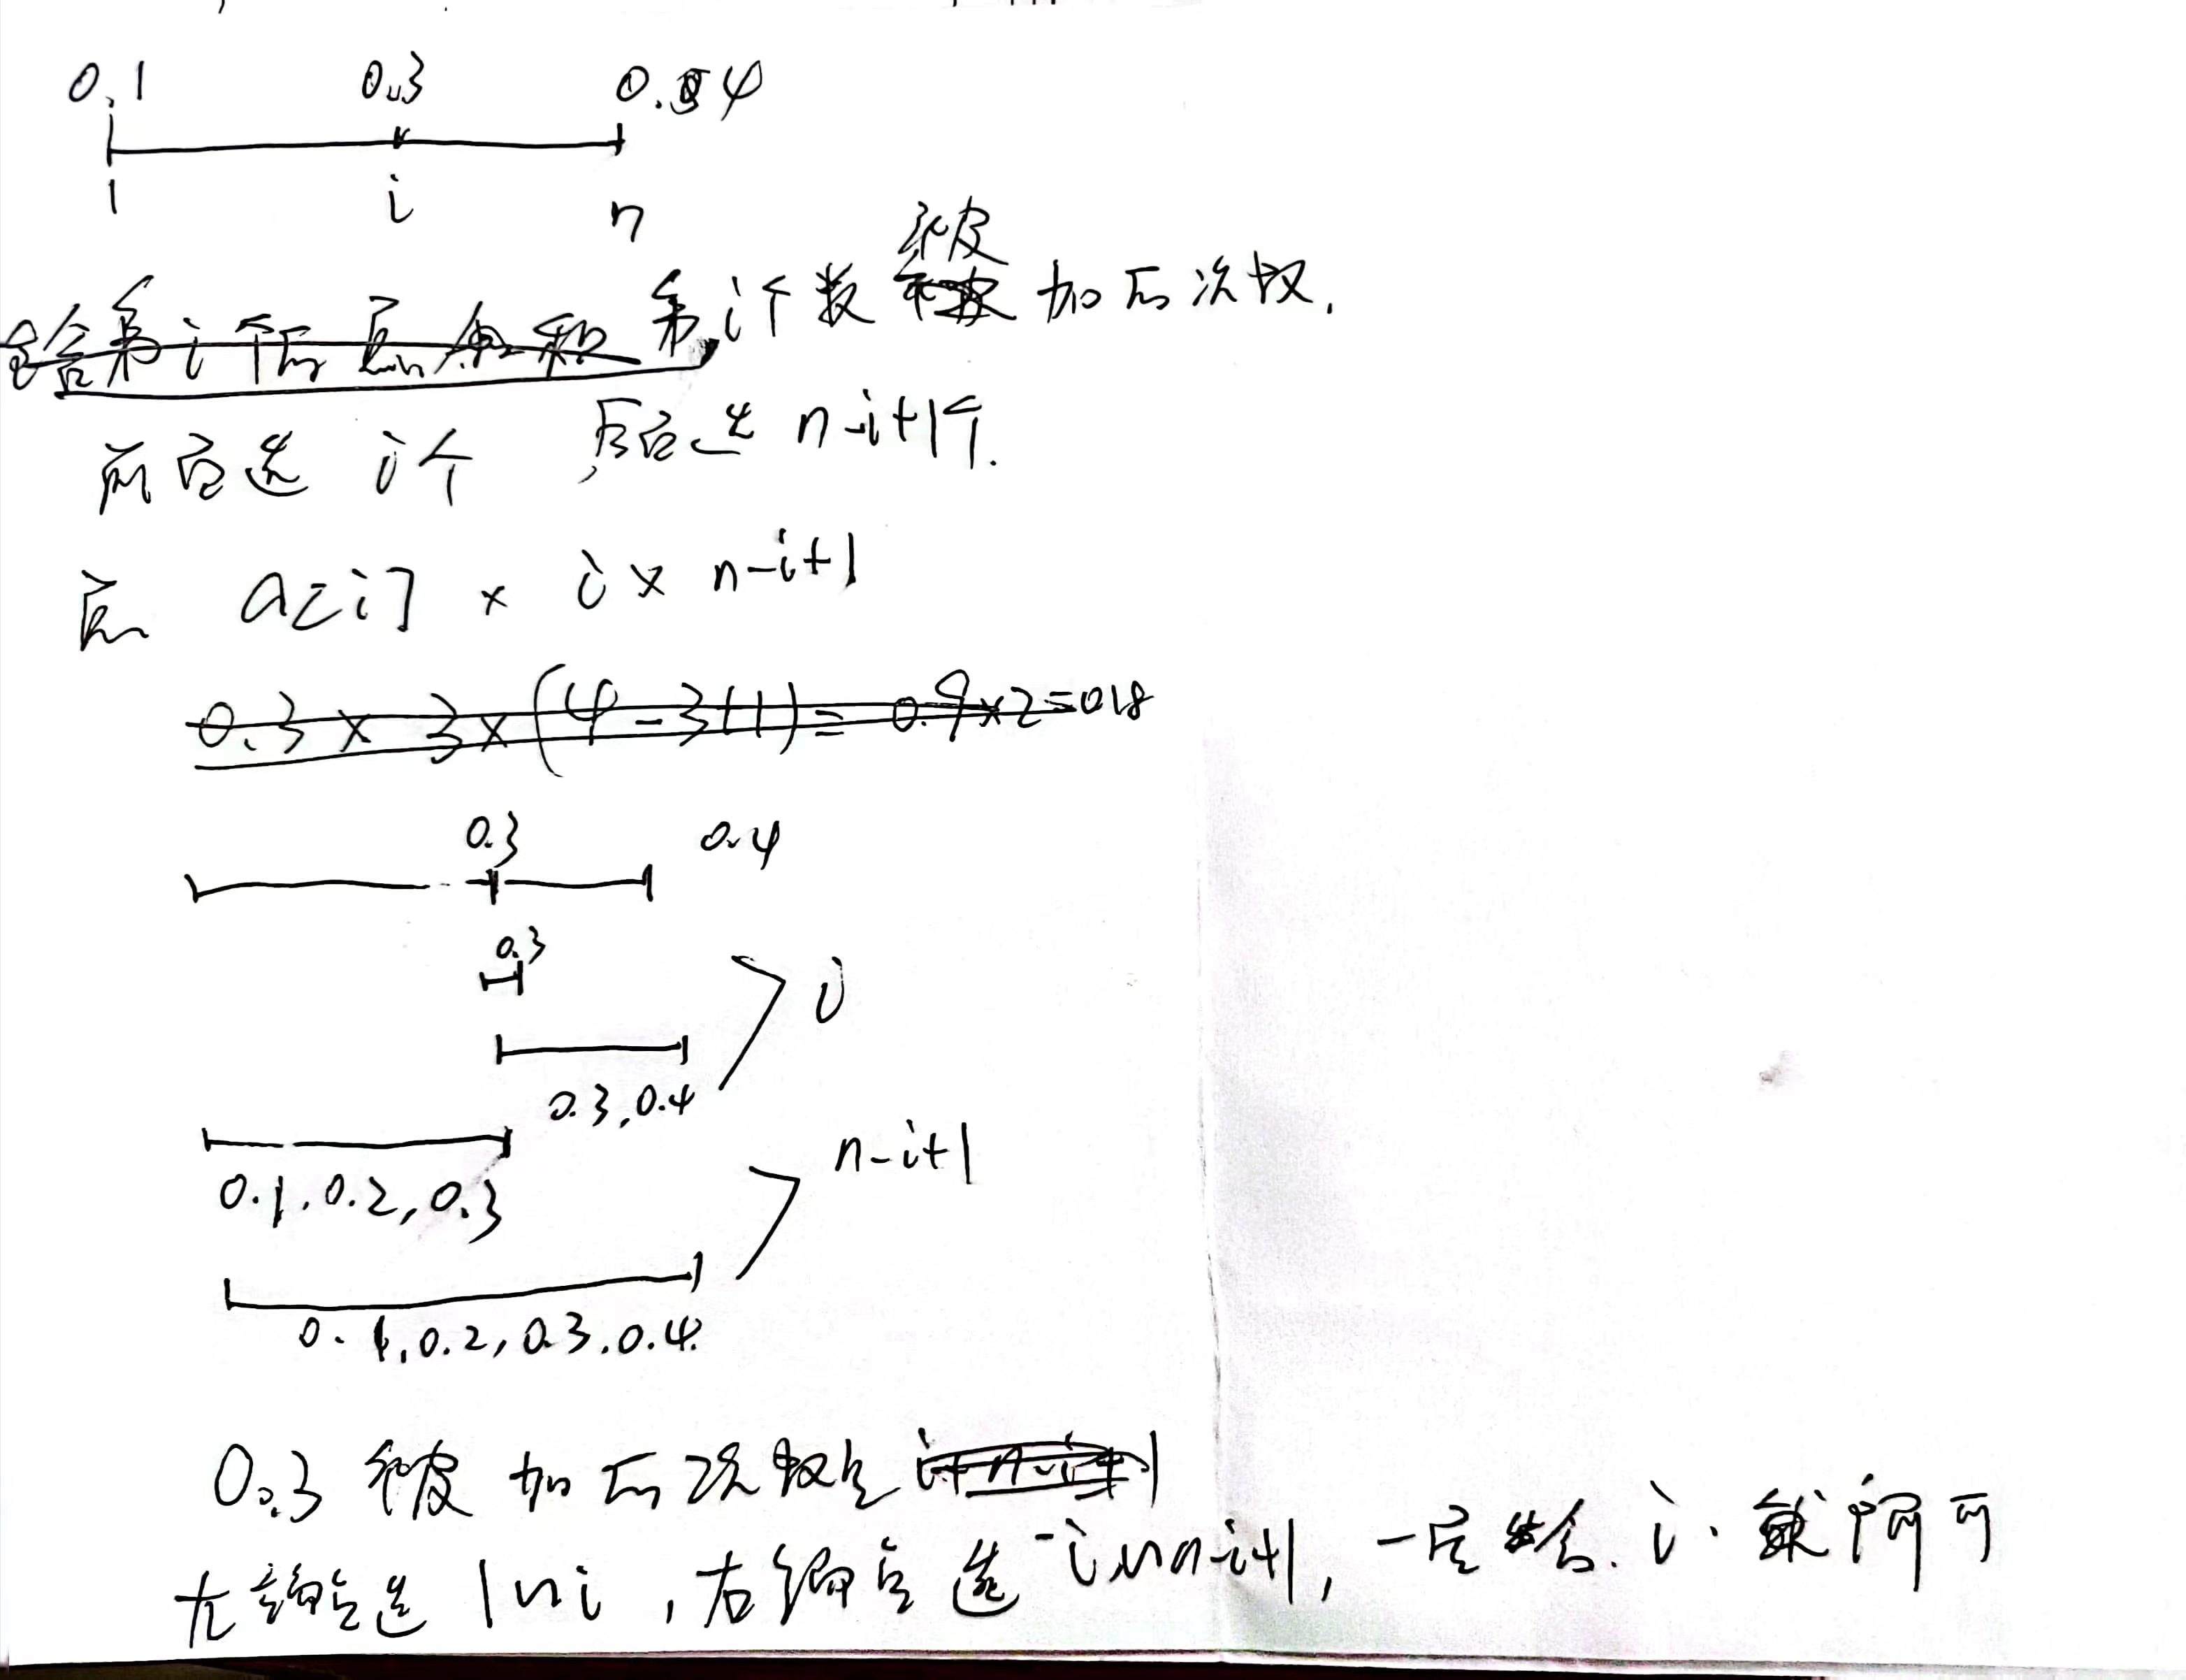 0.1 0.3 0.4
1 i n
第i个数被加的次数.
前面选 i个 后面选 n-i+1个.
a[i] × i × n-i+1
0.3 × 3 × (4-3+1) = 0.9×2=018
0.3 0.4
0.3
i
0.3,0.4
n-i+1
0.1,0.2,0.3
0.1,0.2,0.3.0.4.
0.3 被加的次数是
左端点选 1~i , 右端点选 i~n-i+1, 一定含 i. 就